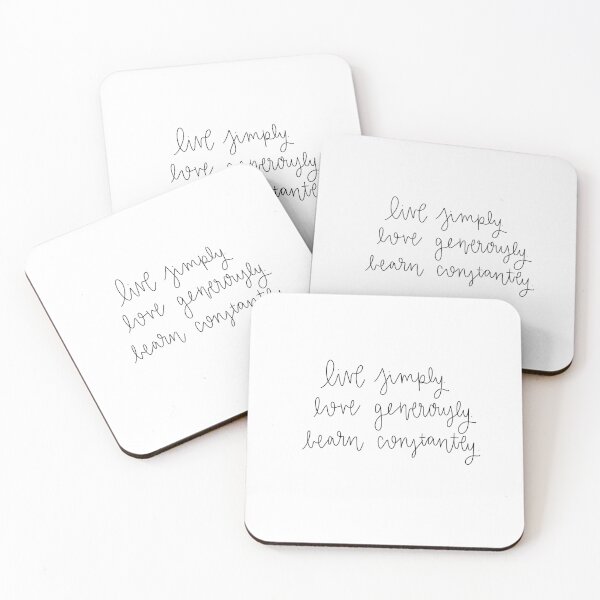 live simply
love generously
live simply
love generously
learn constantly
live simply
love generously
learn constantly
live simply
love generously
learn constantly